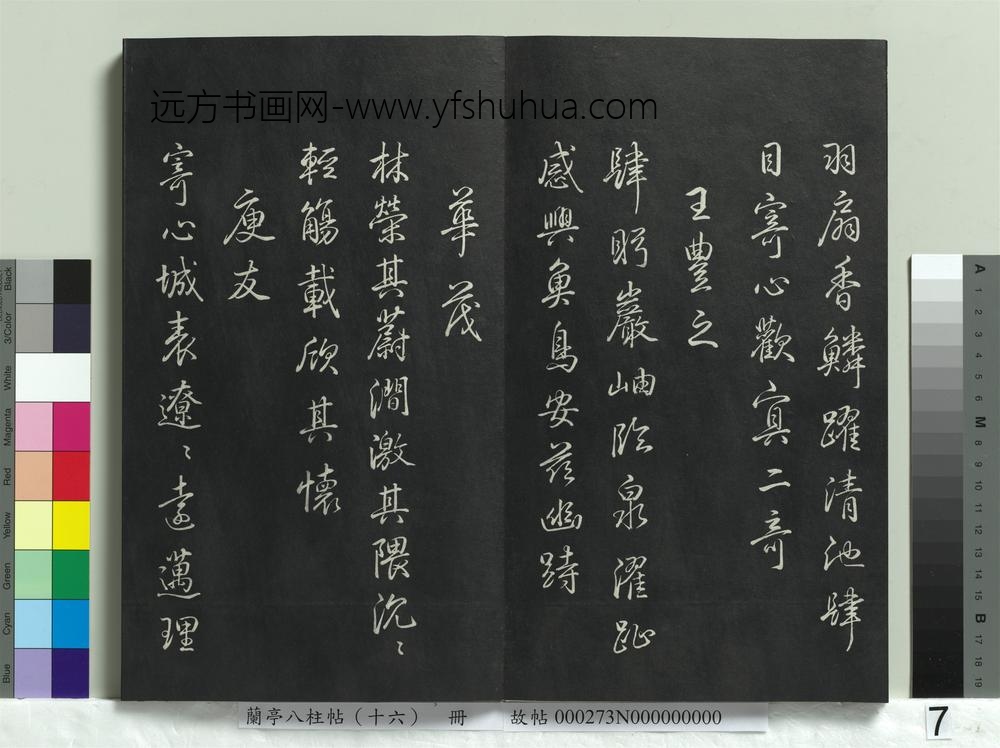 远方书画网-www.yfshuhua.com
羽扇香鱗躍清池肆
目寄心歡冥二奇
王豐之
肆眄巖岫臨泉濯趾
感興魚鳥安茲幽畤
華茂
林榮其蔚澗激其隈汎〻
輕觴載欣其懷
庾友
寄心城表遼〻遠邁理
蘭亭八柱帖（十六） 冊 故帖 000273N000000000
7
Black
3/Color
White
Magenta
Red
Yellow
Green
Cyan
Blue
A 1 2 3 4 5 6 M 8 9 10 11 12 13 14 15 B 17 18 19